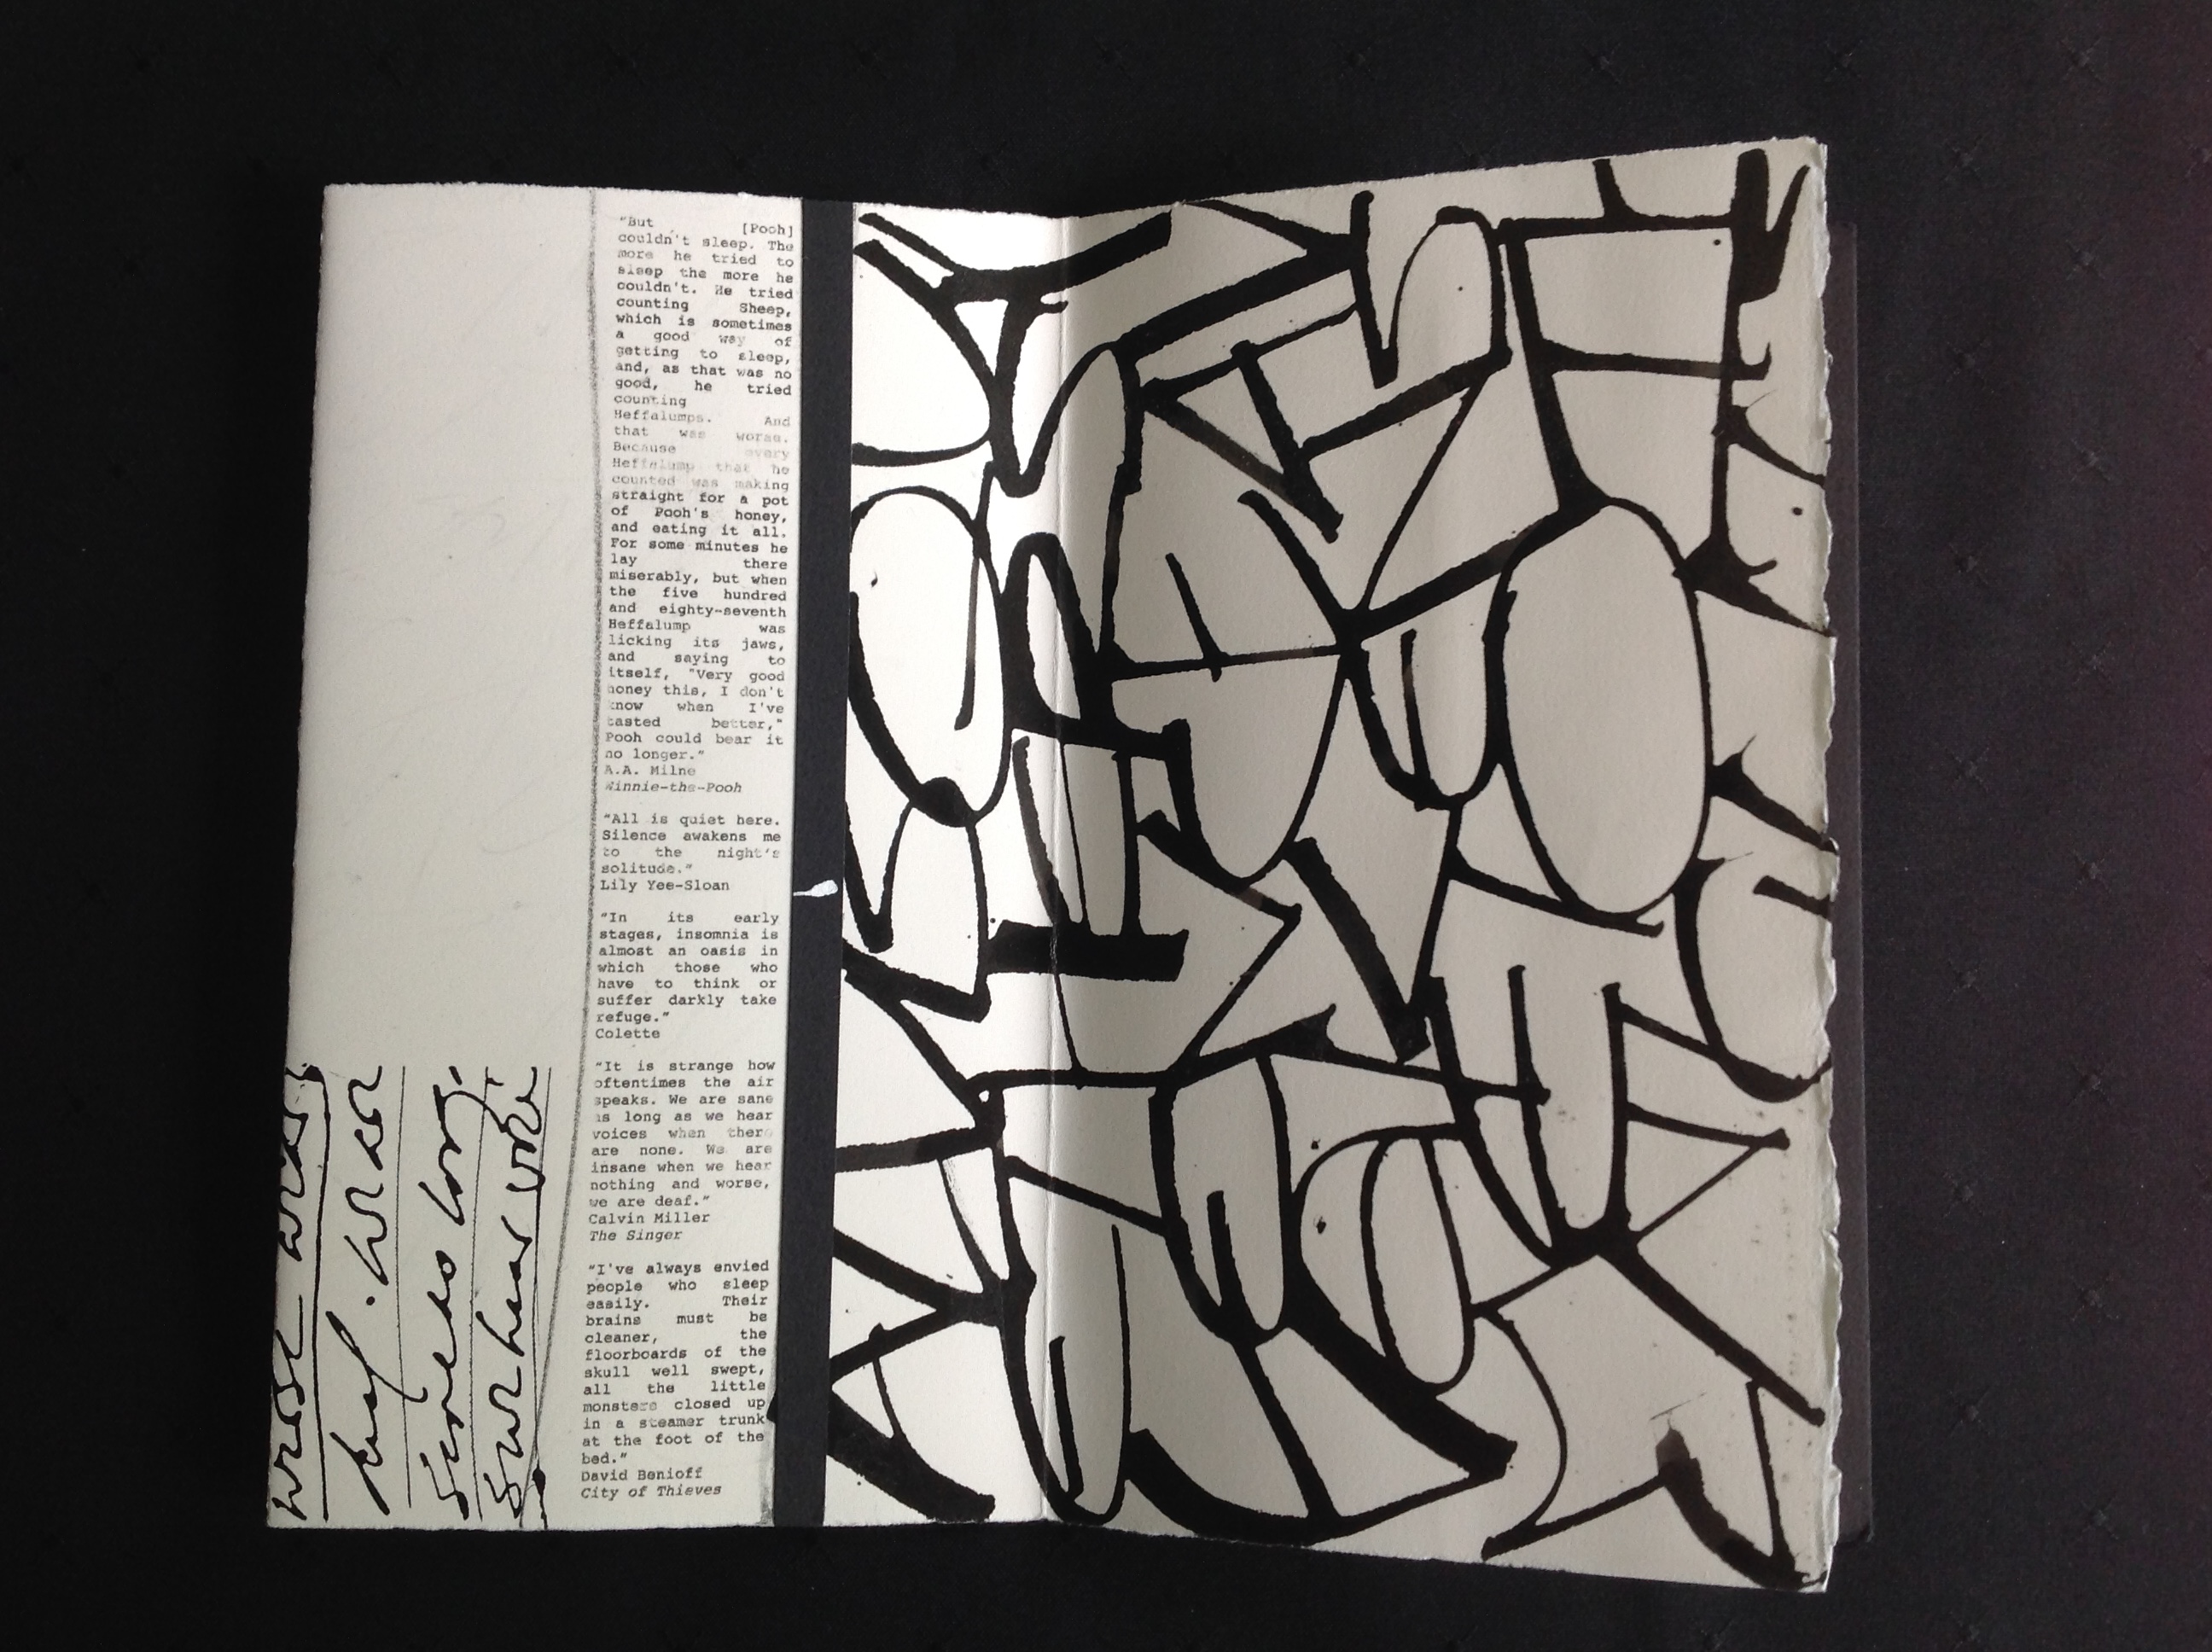 "But [Pooh]
couldn't sleep. The
more he tried to
sleep the more he
couldn't. He tried
counting Sheep,
which is sometimes
a good way of
getting to sleep,
and, as that was no
good, he tried
counting
Heffalumps. And
that was worse.
Because every
Heffalump that he
counted was making
straight for a pot
of Pooh's honey,
and eating it all.
For some minutes he
lay there
miserably, but when
the five hundred
and eighty-seventh
Heffalump was
licking its jaws,
and saying to
itself, "Very good
honey this, I don't
know when I've
tasted better,"
Pooh could bear it
no longer."
A.A. Milne
Winnie-the-Pooh
"All is quiet here.
Silence awakens me
to the night's
solitude."
Lily Yee-Sloan
"In its early
stages, insomnia is
almost an oasis in
which those who
have to think or
suffer darkly take
refuge."
Colette
"It is strange how
oftentimes the air
speaks. We are sane
as long as we hear
voices when there
are none. We are
insane when we hear
nothing and worse,
we are deaf."
Calvin Miller
The Singer
"I've always envied
people who sleep
easily. Their
brains must be
cleaner, the
floorboards of the
skull well swept,
all the little
monsters closed up
in a steamer trunk
at the foot of the
bed."
David Benioff
City of Thieves